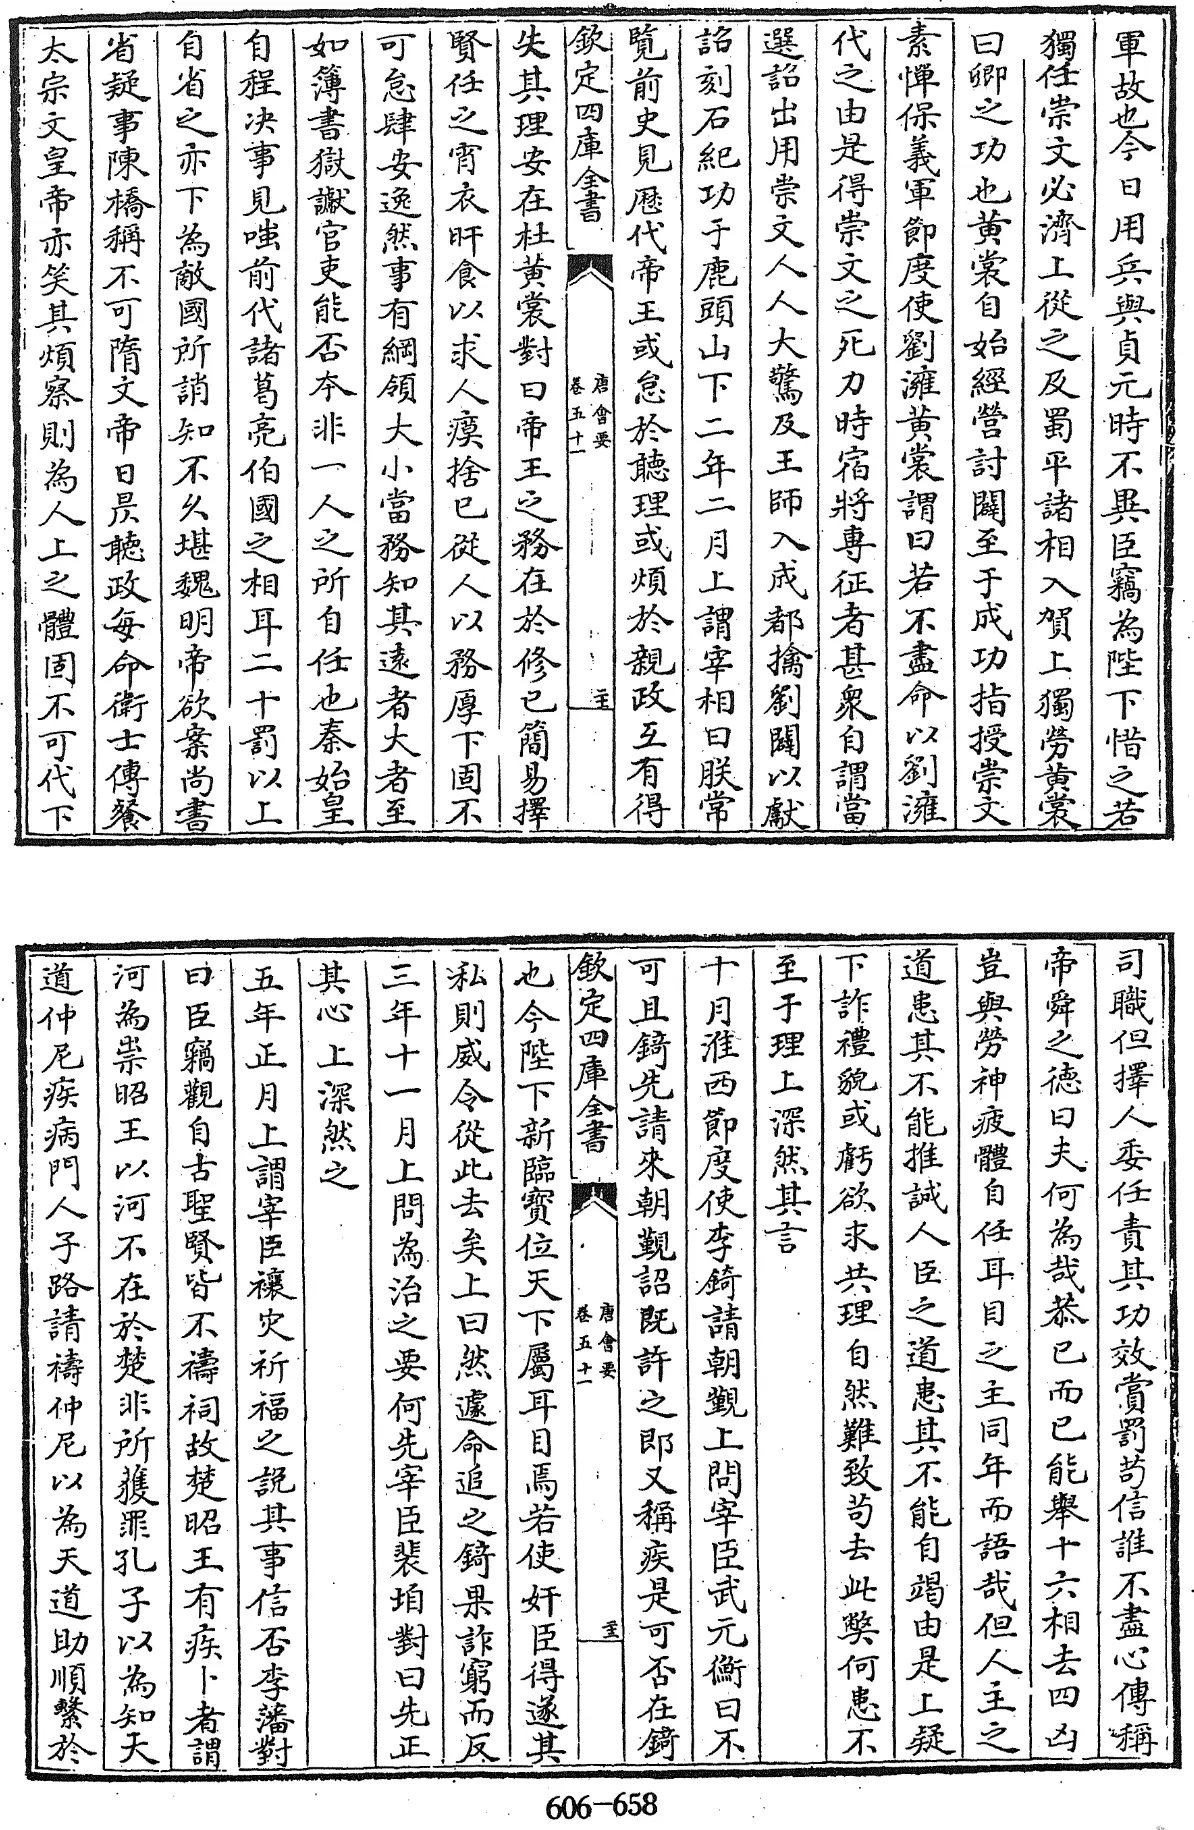 軍故也今日用兵與貞元時不異臣竊為陛下惜之若
獨任崇文必濟上從之及蜀平諸相入賀上獨勞黄裳
曰卿之功也黄裳自始經營討闢至于成功指授崇文
素憚保義軍節度使劉澭黄裳謂曰若不盡命以劉澭
代之由是得崇文之死力時宿將専征者甚衆自謂當
選詔出用崇文人人大驚及王師入成都擒劉闢以獻
詔刻石紀功于鹿頭山下二年二月上謂宰相曰朕常
覽前史見歴代帝王或怠於聽理或煩於親政互有得
欽定四庫全書
唐會要
卷五十一
失其理安在杜黄裳對曰帝王之務在於修已簡易擇
賢任之宵衣旰食以求人瘼捨已從人以務厚下固不
可怠肆安逸然事有綱領大小當務知其遠者大者至
如簿書獄讞官吏能否本非一人之所自任也秦始皇
自程决事見嗤前代諸葛亮伯國之相耳二十罰以上
自省之亦下為敵國所誚知不久堪魏明帝欲案尚書
省疑事陳橋稱不可隋文帝日昃聽政每命衛士傳餐
太宗文皇帝亦笑其煩察則為人上之體固不可代下
司職但擇人委任責其功效賞罰苟信誰不盡心傳稱
帝舜之徳曰夫何為哉恭已而已能舉十六相去四凶
豈與勞神疲體自任耳目之主同年而語哉但人主之
道患其不能推誠人臣之道患其不能自竭由是上疑
下詐禮貌或虧欲求共理自然難致苟去此弊何患不
至于理上深然其言
十月淮西節度使李錡請朝覲上問宰臣武元衡曰不
可且錡先請來朝覲詔既許之即又稱疾是可否在錡
欽定四庫全書
唐會要
卷五十一
也今陛下新臨寳位天下屬耳目焉若使奸臣得遂其
私則威令從此去矣上曰然遽命追之錡果詐窮而反
三年十一月上問為治之要何先宰臣裴垍對曰先正
其心上深然之
五年正月上謂宰臣禳灾祈福之説其事信否李藩對
曰臣竊觀自古聖賢皆不禱祠故楚昭王有疾卜者謂
河為祟昭王以河不在於楚非所獲罪孔子以為知天
道仲尼疾病門人子路請禱仲尼以為天道助順繫於
606-658